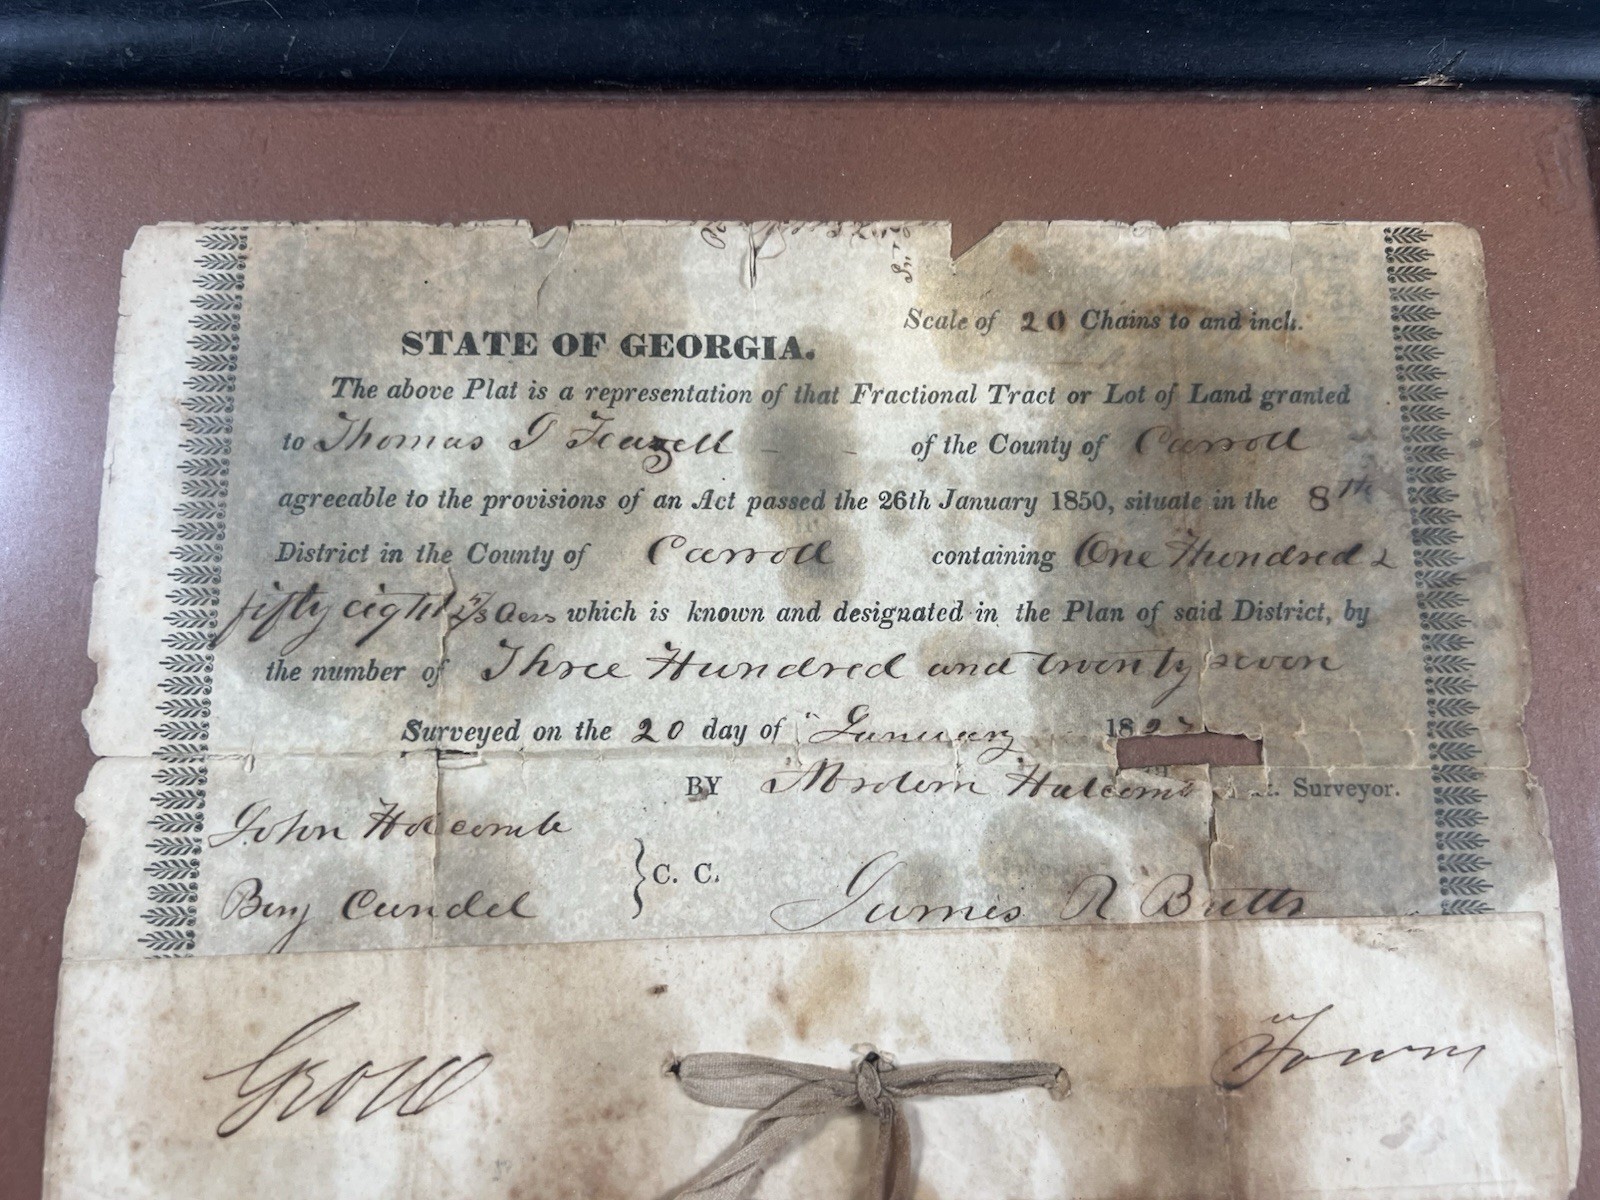 Scale of 20 Chains to and inch.
STATE OF GEORGIA.
The above Plat is a representation of that Fractional Tract or Lot of Land granted
to Thomas G Feazell of the County of Carroll
agreeable to the provisions of an Act passed the 26th January 1850, situate in the 8th
District in the County of Carroll containing One Hundred &
fifty eight Acrs which is known and designated in the Plan of said District, by
the number of Three Hundred and twenty seven
Surveyed on the 20 day of January 1827
BY Holcomb Surveyor.
John Holcomb
C. C.
Benj Cundel
James R Butts
Geo W
Towns